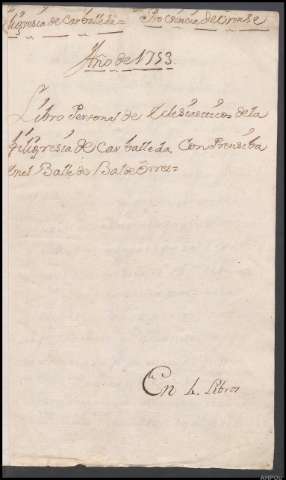 feligresia de Carballeda = Provincia de Orense
Año de 1753
Libro Personal de Eclesiasticos de la
feligresia de Carballeda Conprendida
en el Balle de Baldeorres
En 4. Libros
AHPOU